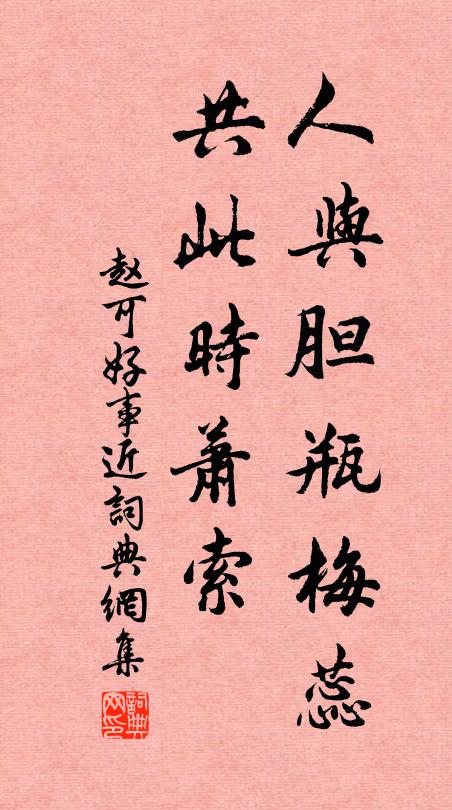 人與胆瓶梅蕊
共此時蕭索
赵可好事近詞典網集
詞典网印